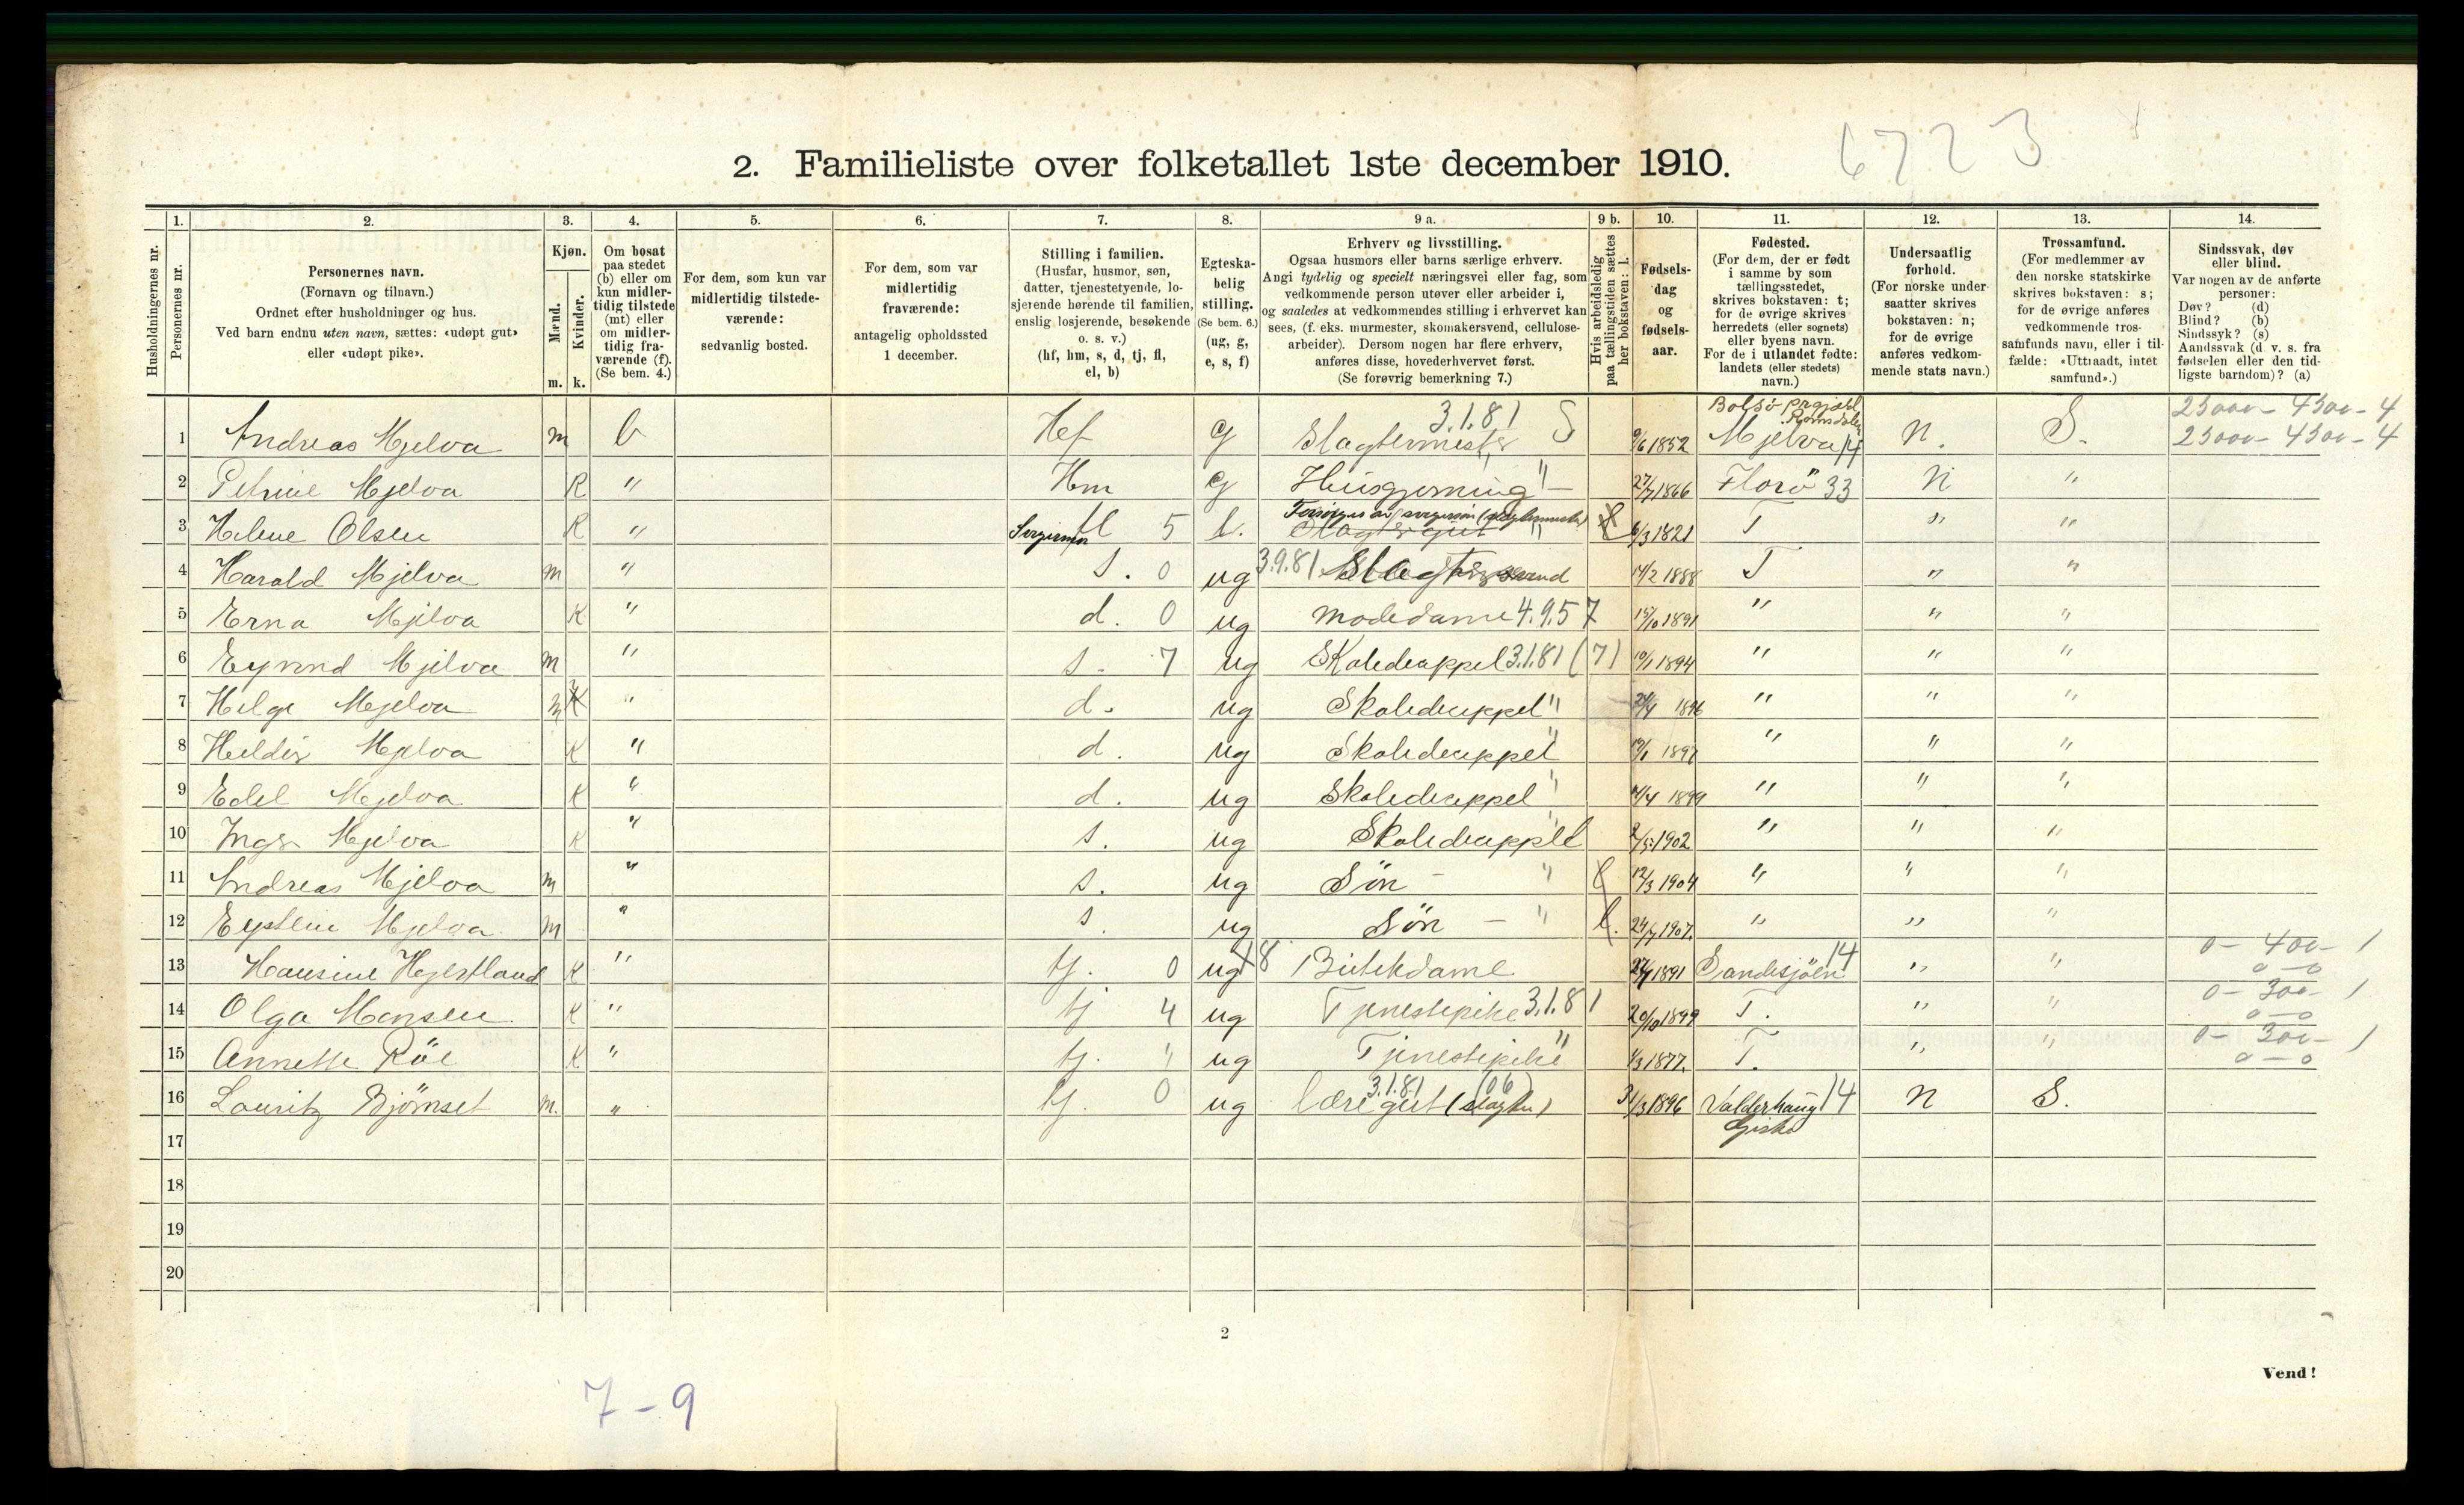 6723
2. Familieliste over folketallet 1ste december 1910.
1. 2. 3. 4. 5. 6. 7. 8. 9 a. 9 b. 10. 11. 12. 13. 14.
Husholdningernes nr.
Personernes nr.
Personernes navn.
(Fornavn og tilnavn.)
Ordnet efter husholdninger og hus.
Ved barn endnu uten navn, sættes: «udøpt gut»
eller «udøpt pike».
Kjøn.
Mænd.
Kvinder.
m. k.
Om bosat
paa stedet
(b) eller om
kun midler-
tidig tilstede
(mt) eller
om midler-
tidig fra-
værende (f).
(Se bem. 4.)
For dem, som kun var
midlertidig tilstede-
værende:
sedvanlig bosted.
For dem, som var
midlertidig
fraværende:
antagelig opholdssted
1 december.
Stilling i familien.
(Husfar, husmor, søn,
datter, tjenestetyende, lo-
sjerende hørende til familien,
enslig losjerende, besøkende
o. s. v.)
(hf, hm, s, d, tj, fl,
el, b)
Egteska-
belig
stilling.
(Se bem. 6.)
(ug, g,
e, s, f)
Erhverv og livsstilling.
Ogsaa husmors eller barns særlige erhverv.
Angi tydelig og specielt næringsvei eller fag, som
vedkommende person utøver eller arbeider i,
og saaledes at vedkommendes stilling i erhvervet kan
sees, (f. eks. murmester, skomakersvend, cellulose-
arbeider). Dersom nogen har flere erhverv,
anføres disse, hovederhvervet først.
(Se forøvrig bemerkning 7.)
Hvis arbeidsledig
paa tællingstiden sættes
her bokstaven: l.
Fødsels-
dag
og
fødsels-
aar.
Fødested.
(For dem, der er født
i samme by som
tællingsstedet,
skrives bokstaven: t;
for de øvrige skrives
herredets (eller sognets)
eller byens navn.
For de i utlandet fødte:
landets (eller stedets)
navn.)
Undersaatlig
forhold.
(For norske under-
saatter skrives
bokstaven: n;
for de øvrige
anføres vedkom-
mende stats navn.)
Trossamfund.
(For medlemmer av
den norske statskirke
skrives bokstaven: s;
for de øvrige anføres
vedkommende tros-
samfunds navn, eller i til-
fælde: «Uttraadt, intet
samfund».)
Sindssvak, døv
eller blind.
Var nogen av de anførte
personer:
Døv? (d)
Blind? (b)
Sindssyk? (s)
Aandssvak (d. v. s. fra
fødselen eller den tid-
ligste barndom)? (a)
3.1.81 Bolsø prgjæld Romsdalen 25000 - 4300 - 4
1 Andreas Mjelva m b Hf g Slagtermester S 9/6 1852 Mjelva 14 N. S. 25000 - 4300 - 4
2 Petrine Mjelva K " Hm g Husgjerning " - 27/7 1866 Florö 33 N "
Forsørges av svigersøn (slagtermester)
3 Helene Olsen K " Svigermor fl 5 e. Slagtergut " 6/3 1821 T " "
4 Harald Mjelva m " s. 0 ug 3.9.81 Slagtersvend 14/2 1888 T " "
5 Erna Mjelva K " d. 0 ug Modedame 4.9.57 15/10 1891 " " "
6 Eyvind Mjelva m " s. 7 ug Skoledeuppel 3.1.81 (7) 10/1 1894 " " "
7 Helge Mjelva K " d. ug Skoledeuppel " 24/4 1896 " " "
8 Heldis Mjelva K " d. ug Skoledeuppel " 1897 " " "
9 Edel Mjelva K " d. ug Skoledeuppel " 1899 " " "
10 Inga Mjelva K " s. ug Skoledeuppel " 2/5 1902 " " "
11 Andreas Mjelva m " s. ug Søn - " 12/3 1904 " " "
12 Eystein Mjelva m " s. ug Søn - " 24/7 1907. " " "
13 Hansine Hjertland K " tj. 0 ug 18 Butikdame 1891 Sandesjöen 14 " " 0 - 400 - 1
0 - 0
14 Olga Monsen K " tj 4 ug Tjenestepike 3.1.81 20/10 1899 T. " " 0 - 300 - 1
0 - 0
15 Annette Röe K " tj. " ug Tjenestepike " 1/3 1877. T. " " 0 - 300 - 1
0 - 0
3.1.81 (06)
16 Lauritz Bjömset m. " tj. 0 ug læregut (slagter) 31/3 1896 Valderhaug 14 N S.
Giske
17
18
19
20
2
Vend!
7 - 9